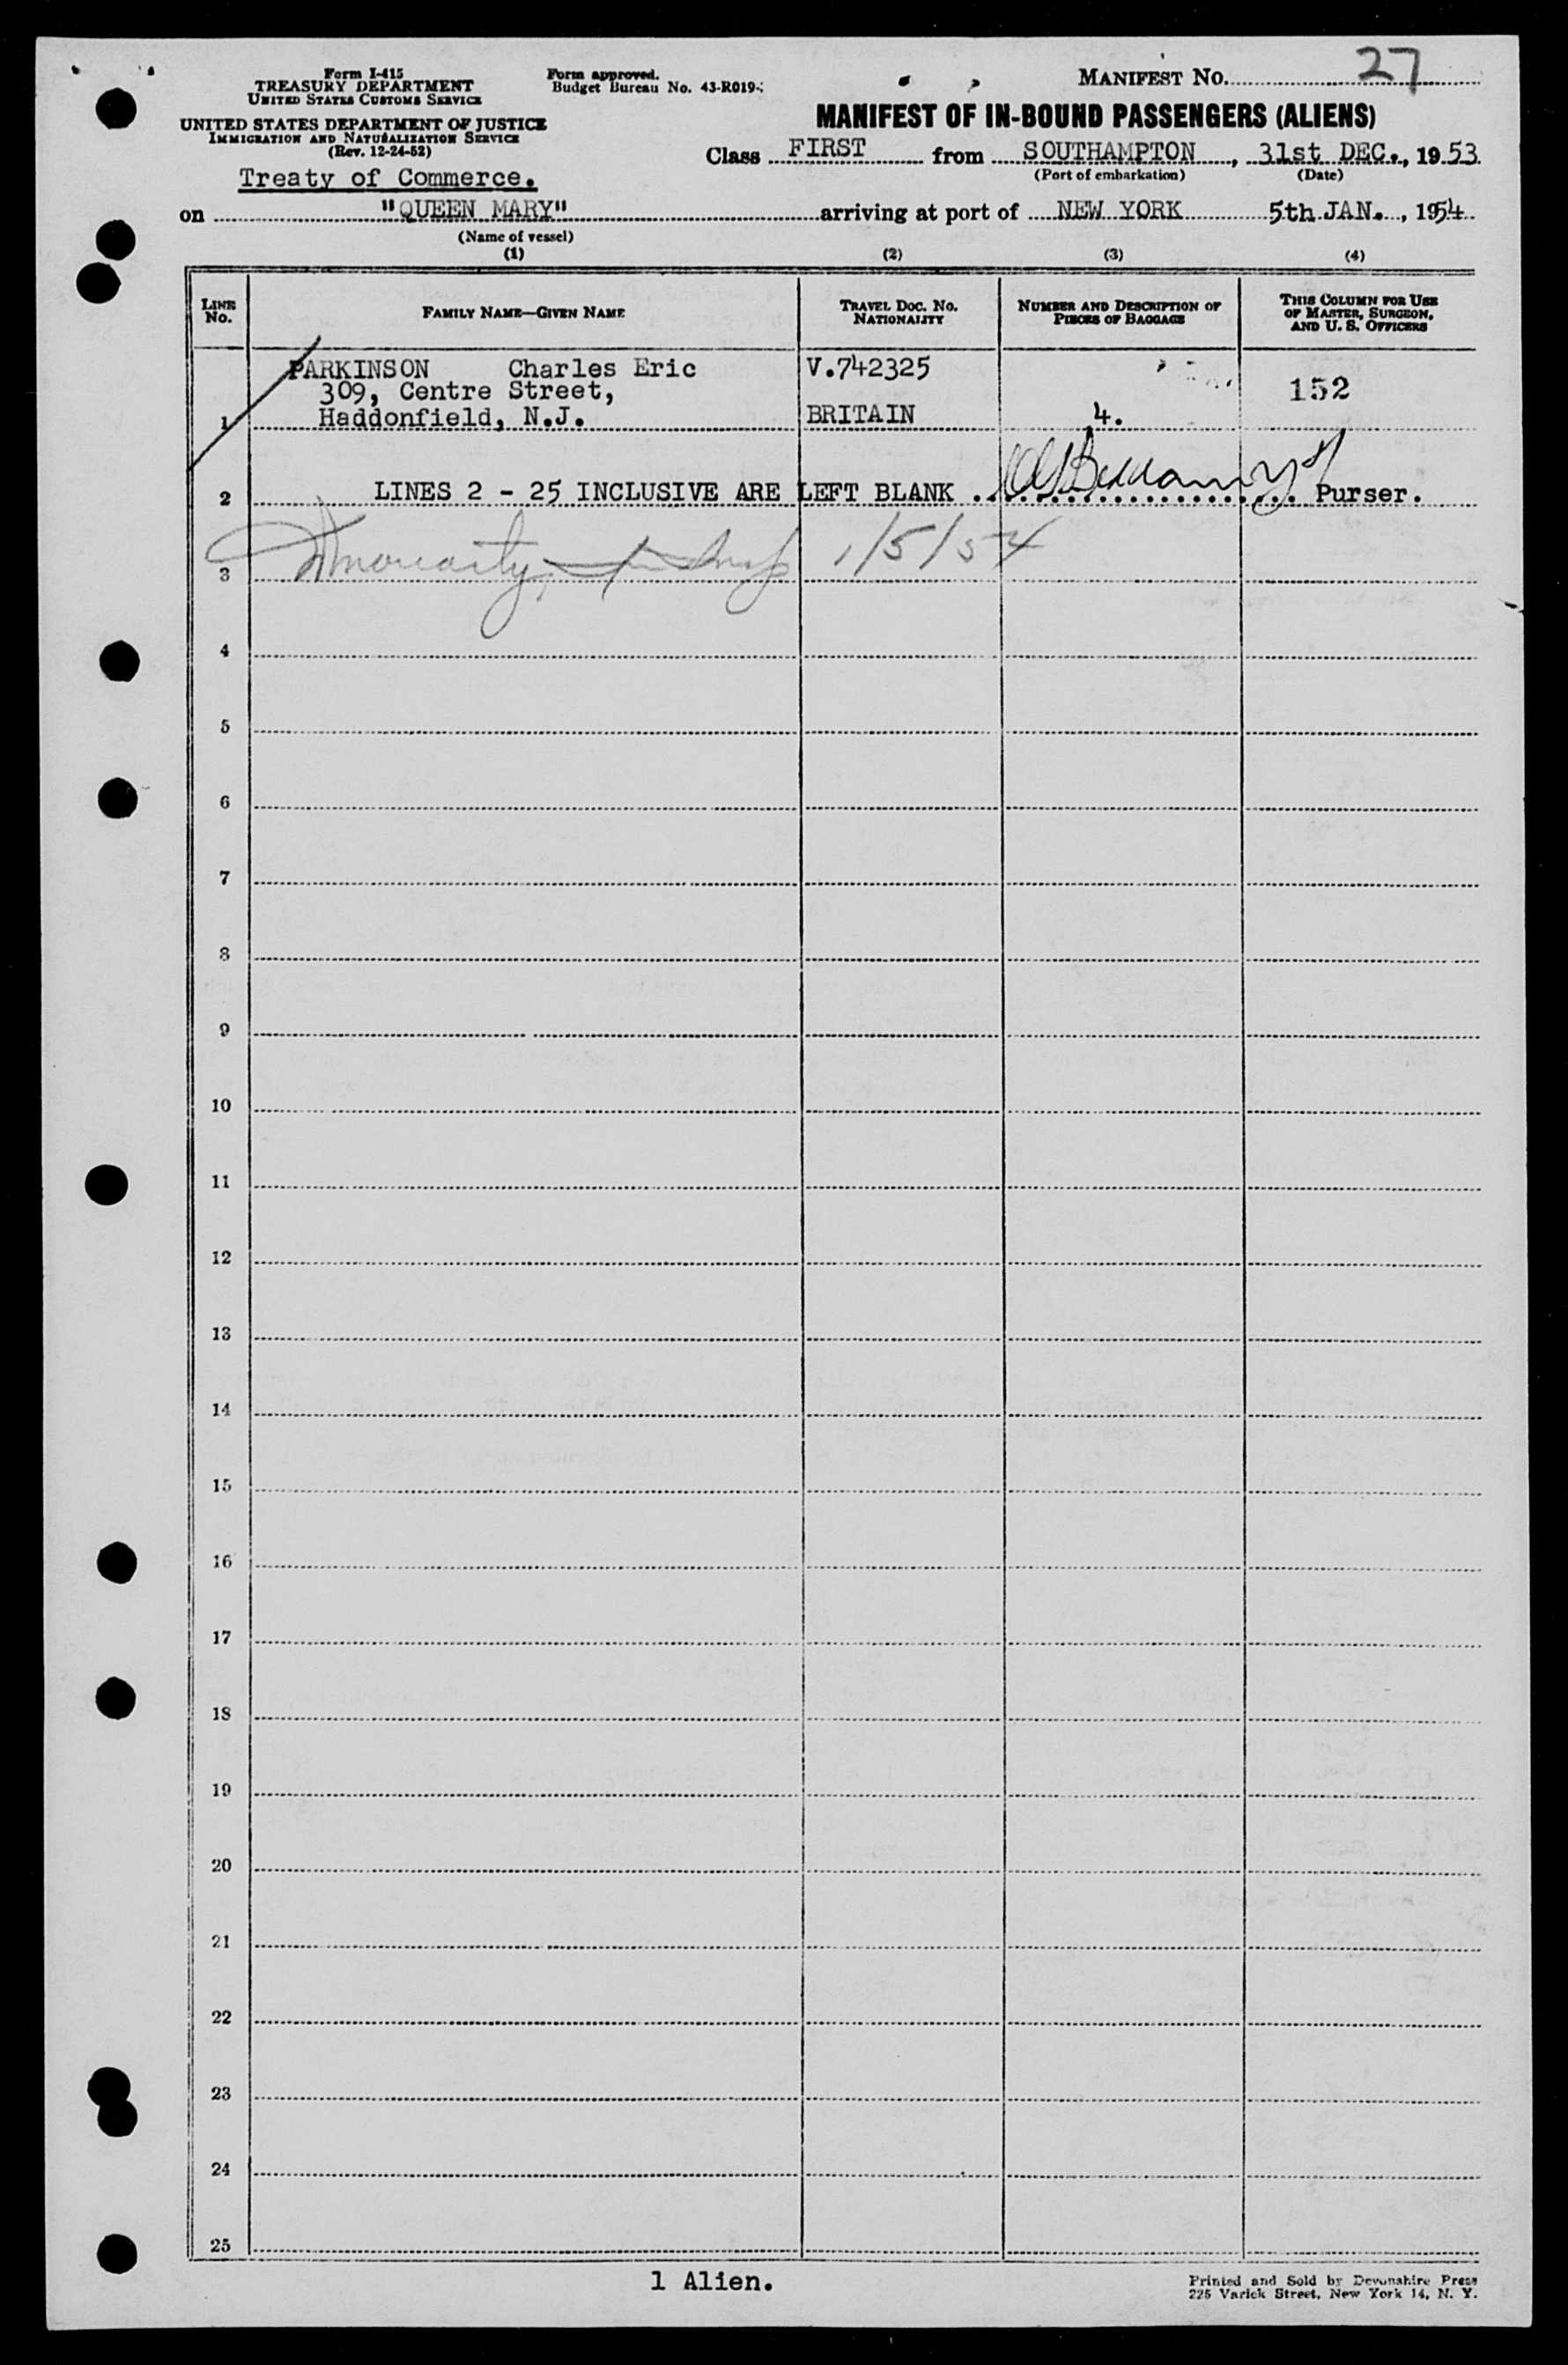 Form I-415
TREASURY DEPARTMENT
UNITED STATES CUSTOMS SERVICE
UNITED STATES DEPARTMENT OF JUSTICE
IMMIGRATION AND NATURALIZATION SERVICE
(Rev. 12-24-52)
Treaty of Commerce.
Form approved.
Budget Bureau No. 43-R019-
MANIFEST NO. 27
MANIFEST OF IN-BOUND PASSENGERS (ALIENS)
Class FIRST from SOUTHAMPTON, 31st DEC., 1953
(Port of embarkation) (Date)
on "QUEEN MARY" arriving at port of NEW YORK 5th JAN., 1954
(Name of vessel)
(1) (2) (3) (4)
LINE NO.
FAMILY NAME—GIVEN NAME
TRAVEL DOC. NO. NATIONALITY
NUMBER AND DESCRIPTION OF PIECES OF BAGGAGE
THIS COLUMN FOR USE OF MASTER, SURGEON, AND U. S. OFFICERS
PARKINSON Charles Eric V.742325
309, Centre Street, 152
1 Haddonfield, N.J. BRITAIN 4.
2 LINES 2 - 25 INCLUSIVE ARE LEFT BLANK Purser.
3 1/5/54
4
5
6
7
8
9
10
11
12
13
14
15
16
17
18
19
20
21
22
23
24
25
1 Alien.
Printed and Sold by Devonshire Press
225 Varick Street, New York 14, N. Y.